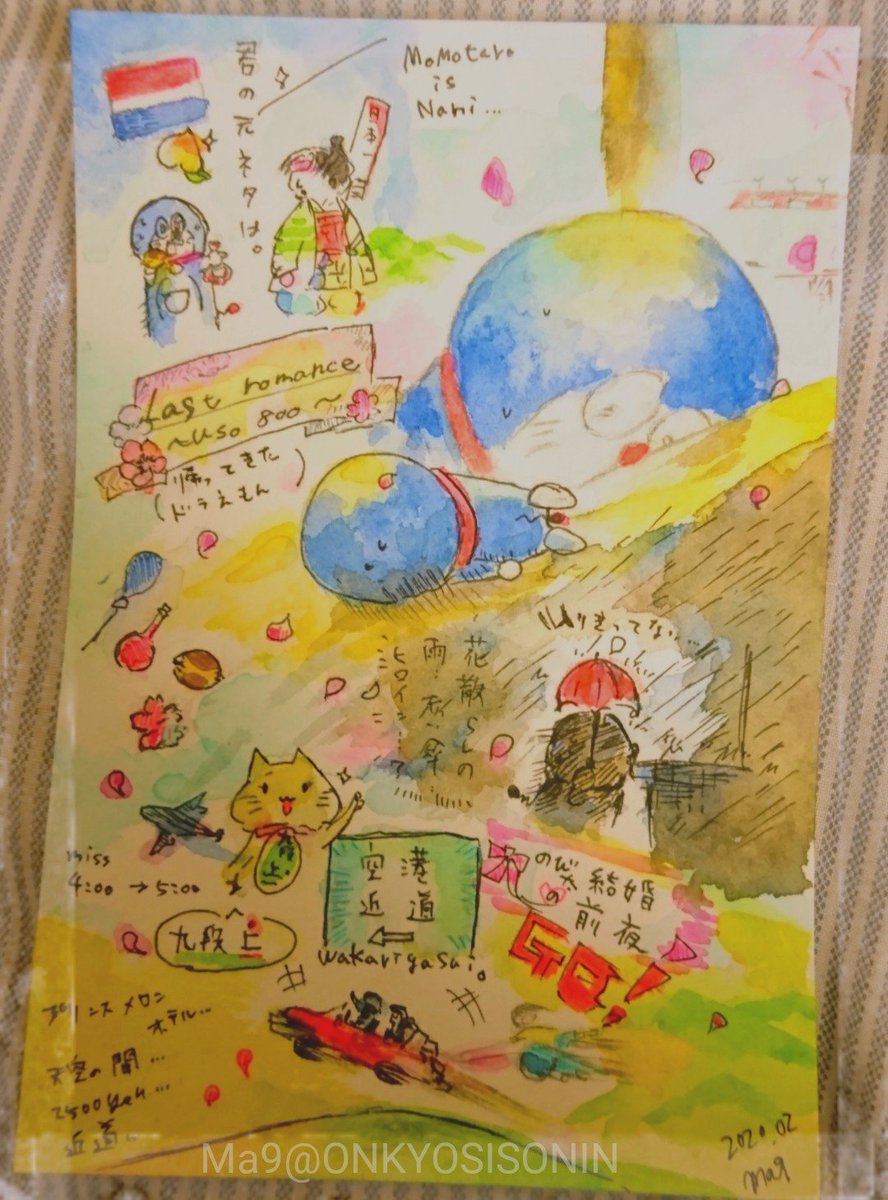 君の元ネタは。
MoMotaro
is
Nani...
日本一
Last romance
~uso 800~
(帰ってきた
ドラえもん)
花散らしの
雨。赤い傘。
ヒロイン…?
miss
4:00 → 5:00
九段上
空港
近道
wakariyasui。
のび太の
結婚
前夜
プリンスメロン
ホテル…
天空の間…
2500yen…
近道…
2020.02
Ma9
Ma9@ONKYOSISONIN